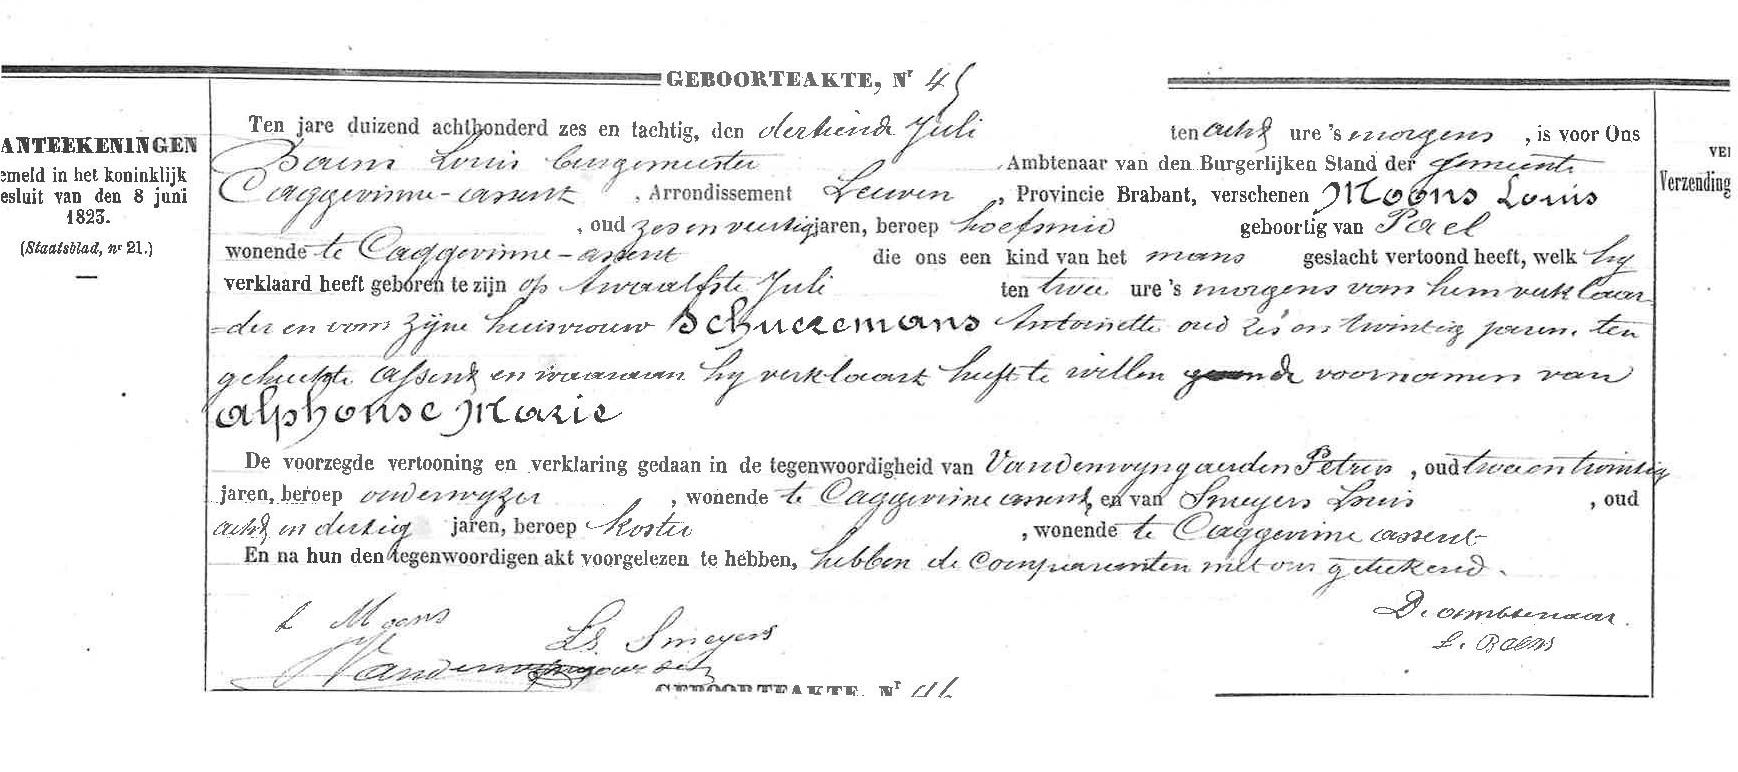 GEBOORTEAKTE, Nr 45
ANTEEKENINGEN
emeld in het koninklijk
esluit van den 8 juni
1823.
(Staatsblad, nr 21.)
VEI
Verzending
Ten jare duizend achthonderd zes en tachtig, den dertiende Juli ten acht ure 's morgens , is voor Ons
Baens Louis burgemeester , Ambtenaar van den Burgerlijken Stand der gemeente
Caggevinne-assent , Arrondissement Leuven , Provincie Brabant, verschenen Moons Louis
, oud zes en veertig jaren, beroep hoefsmid geboortig van Pael
wonende te Caggevinne-assent die ons een kind van het mans geslacht vertoond heeft, welk hy
verklaard heeft geboren te zijn op twaalfste Juli ten twee ure 's morgens van hem verklaar-
=der en van zijne huisvrouw Schueremans Antoinette oud zes en twintig jaren ten
gehuchte Assent en waaraan hy verklaart heeft te willen de voornamen van
Alphonse Marie
De voorzegde vertooning en verklaring gedaan in de tegenwoordigheid van Vandenwyngaerden Petrus , oud twee en twintig
jaren, beroep onderwyzer , wonende te Caggevinne assent, en van Smeyers Louis , oud
acht en dertig jaren, beroep koster , wonende te Caggevinne assent
En na hun den tegenwoordigen akt voorgelezen te hebben, hebben de comparanten met ons geteekend.
L Moons
Ls. Smeyers
De ambtenaar.
L. Baens
GEBOORTEAKTE, Nr 46